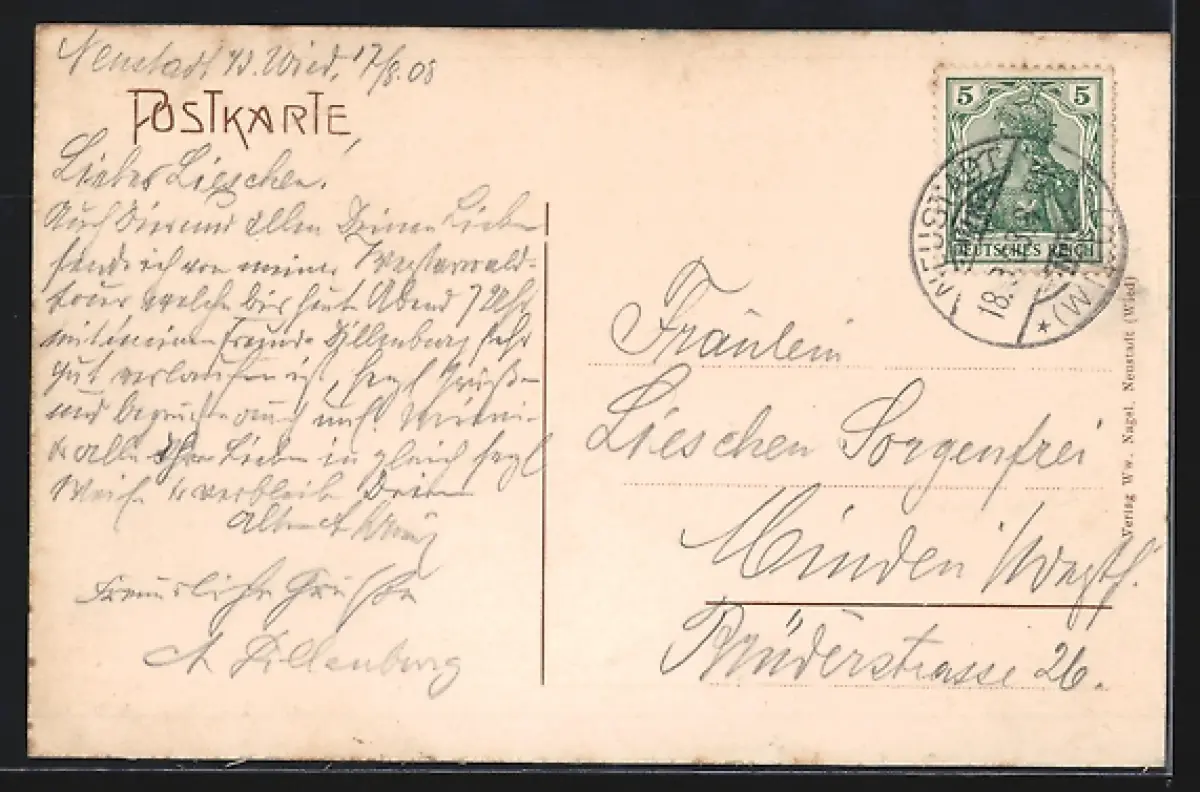 Neustadt b. Wied, 17/8.08
POSTKARTE
Liebes Lieschen.
Auch Dir und allen Deinen Lieben
sende ich von meiner Westerwald-
tour, welche bis heut Abend 7 Uhr
mit meinem Freund Dillenburg sehr
gut verlaufen ist, herzl Grüße
und
& alle Lieben in gleich herzl
Weise u verbleibe Dein
Albert
Freundliche Grüße
A Dillenburg
5 5
DEUTSCHES REICH
NEUSTADT
18.
Fräulein
Lieschen Sorgenfrei
Minden i/Westf.
Brüderstrasse 26.
Verlag Ww. Nagel. Neustadt (Wied)